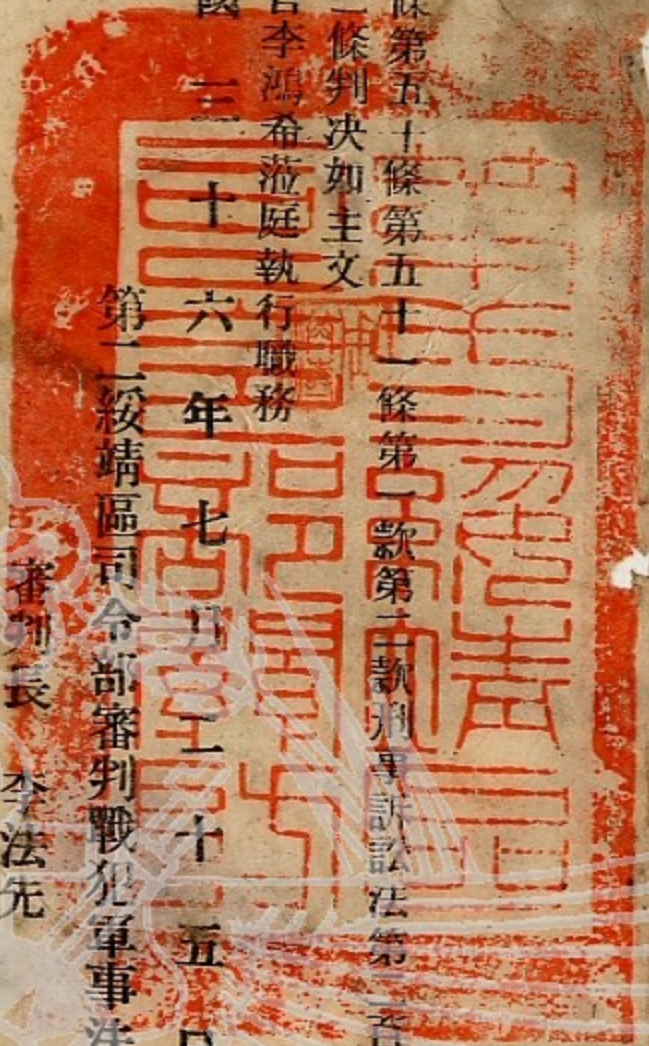 條第五十條第五十一條第一款第二款刑事訴訟法第二百
一條判决如主文
官李鴻希蒞庭執行職務
國三十六年七月二十五日
第二綏靖區司令部審判戰犯軍事法
審判長 李法先